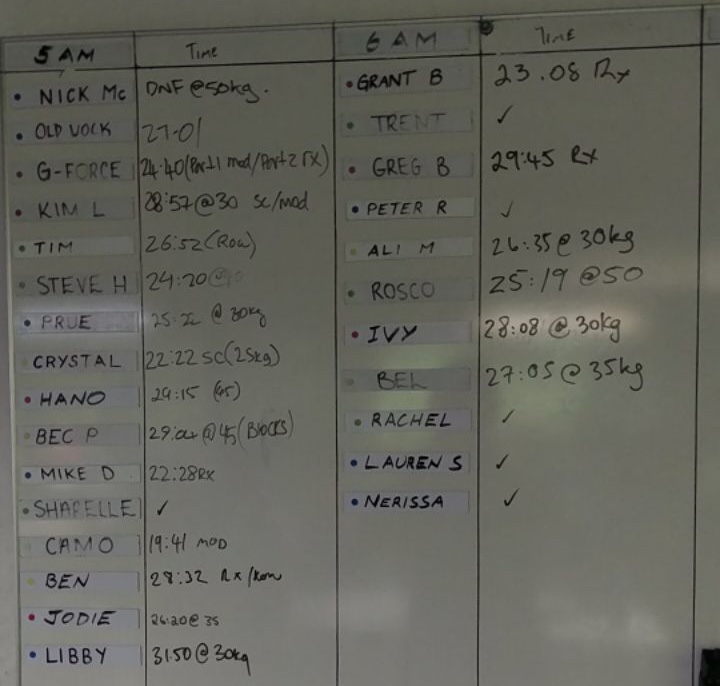 5 AM TIME
NICK Mc DNF @50kg.
OLD 27-01
G-FORCE 24:40 (Part 1 mod/Part 2 rx)
KIM L 28:57@30 sc/mod
TIM 26:52 (Row)
STEVE H 24:20
PRUE 25:22 @ 30kg
CRYSTAL 22:22 SC (25kg)
HANO 29:15 (45)
BEC P 29:04 @ 45 (BLOCKS)
MIKE D 22:28 RX
SHARELLE ✓
CAMO 19:41 MOD
BEN 28:32 Rx
JODIE 26:20@35
LIBBY 31:50@30kg
6 AM TIME
GRANT B 23.08 Rx
TRENT ✓
GREG B 29:45 Rx
PETER R ✓
ALI M 26:35@ 30kg
ROSCO 25:19 @50
IVY 28:08 @ 30kg
BEL 27:05@ 35kg
RACHEL ✓
LAUREN S ✓
NERISSA ✓